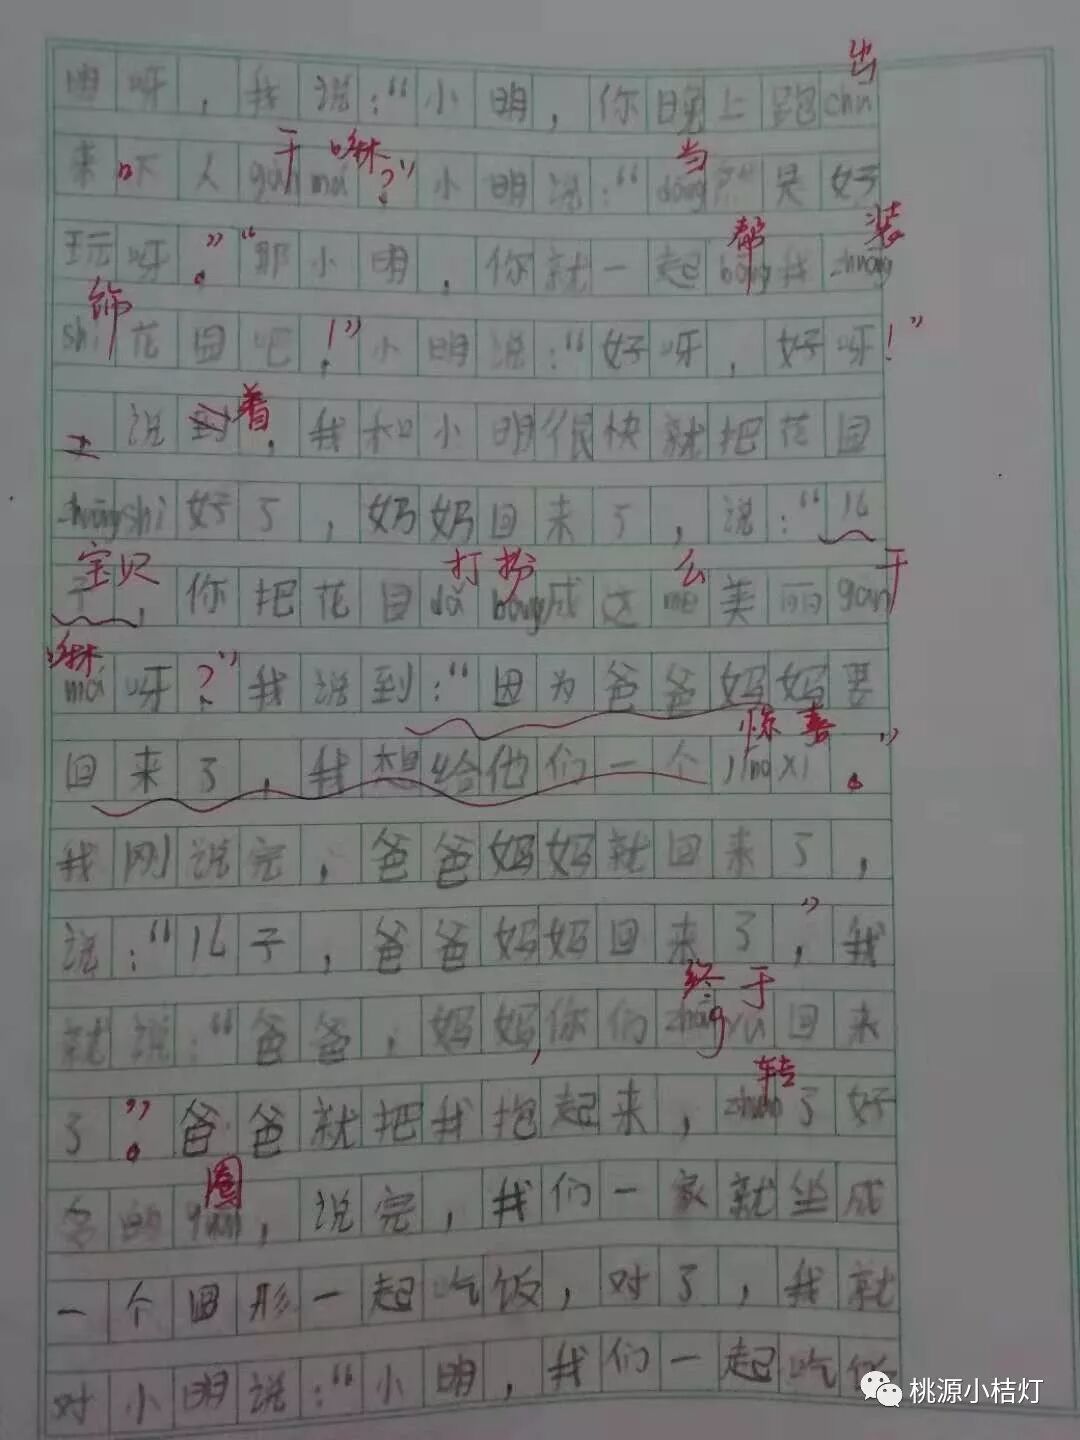 出
明呀，我说：“小明，你晚上跑chu
干 嘛 当
来吓人gàn má？”小明说：“dāng然是好
帮 装
玩呀。”“那小明，你就一起bāng我zhuāng
饰
shì花园吧！”小明说：“好呀，好呀！”
着
说到，我和小明很快就把花园
zhuāng shì好了，奶奶回来了，说：“儿
宝贝 打扮 么 干
子，你把花园dǎ bàng成这me美丽gàn
嘛
má呀？”我说到：“因为爸爸妈妈要
惊喜
回来了，我想给他们一个jing xi。”
我刚说完，爸爸妈妈就回来了，
说：“儿子，爸爸妈妈回来了，”我
终于
就说：“爸爸，妈妈，你们zhōng yú回来
转
了。”爸爸就把我抱起来，zhuàn了好
圈
多的quān，说完，我们一家就坐成
一个圆形一起吃饭，对了，我就
对小明说：“小明，我们一起吃饭
桃源小桔灯